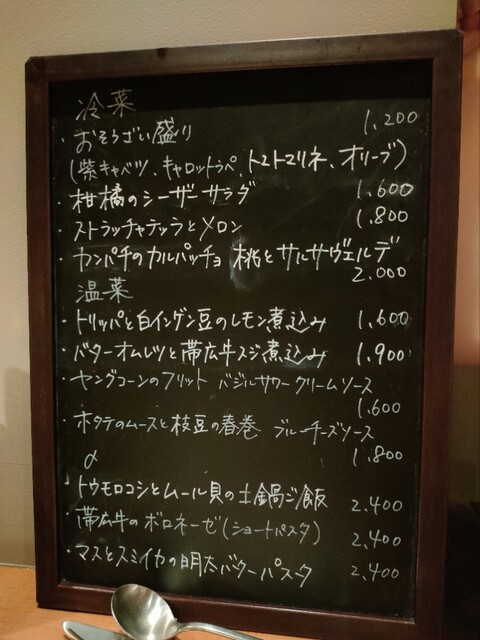 冷菜
・おそうざい盛り 1,200
(紫キャベツ、キャロットラペ、トマトマリネ、オリーブ)
・柑橘のシーザーサラダ 1,600
・ストラッチャテッラとメロン 1,800
・カンパチのカルパッチョ 桃とサルサヴェルデ
2,000
温菜
・トリッパと白インゲン豆のレモン煮込み 1,600
・バターオムレツと帯広牛スジ煮込み 1,900
・ヤングコーンのフリット バジルサワークリームソース
1,600
・ホタテのムースと枝豆の春巻 ブルーチーズソース
1,800
〆
・トウモロコシとムール貝の土鍋ご飯 2,400
・帯広牛のボロネーゼ(ショートパスタ) 2,400
・マスとスミイカの明太バターパスタ 2,400